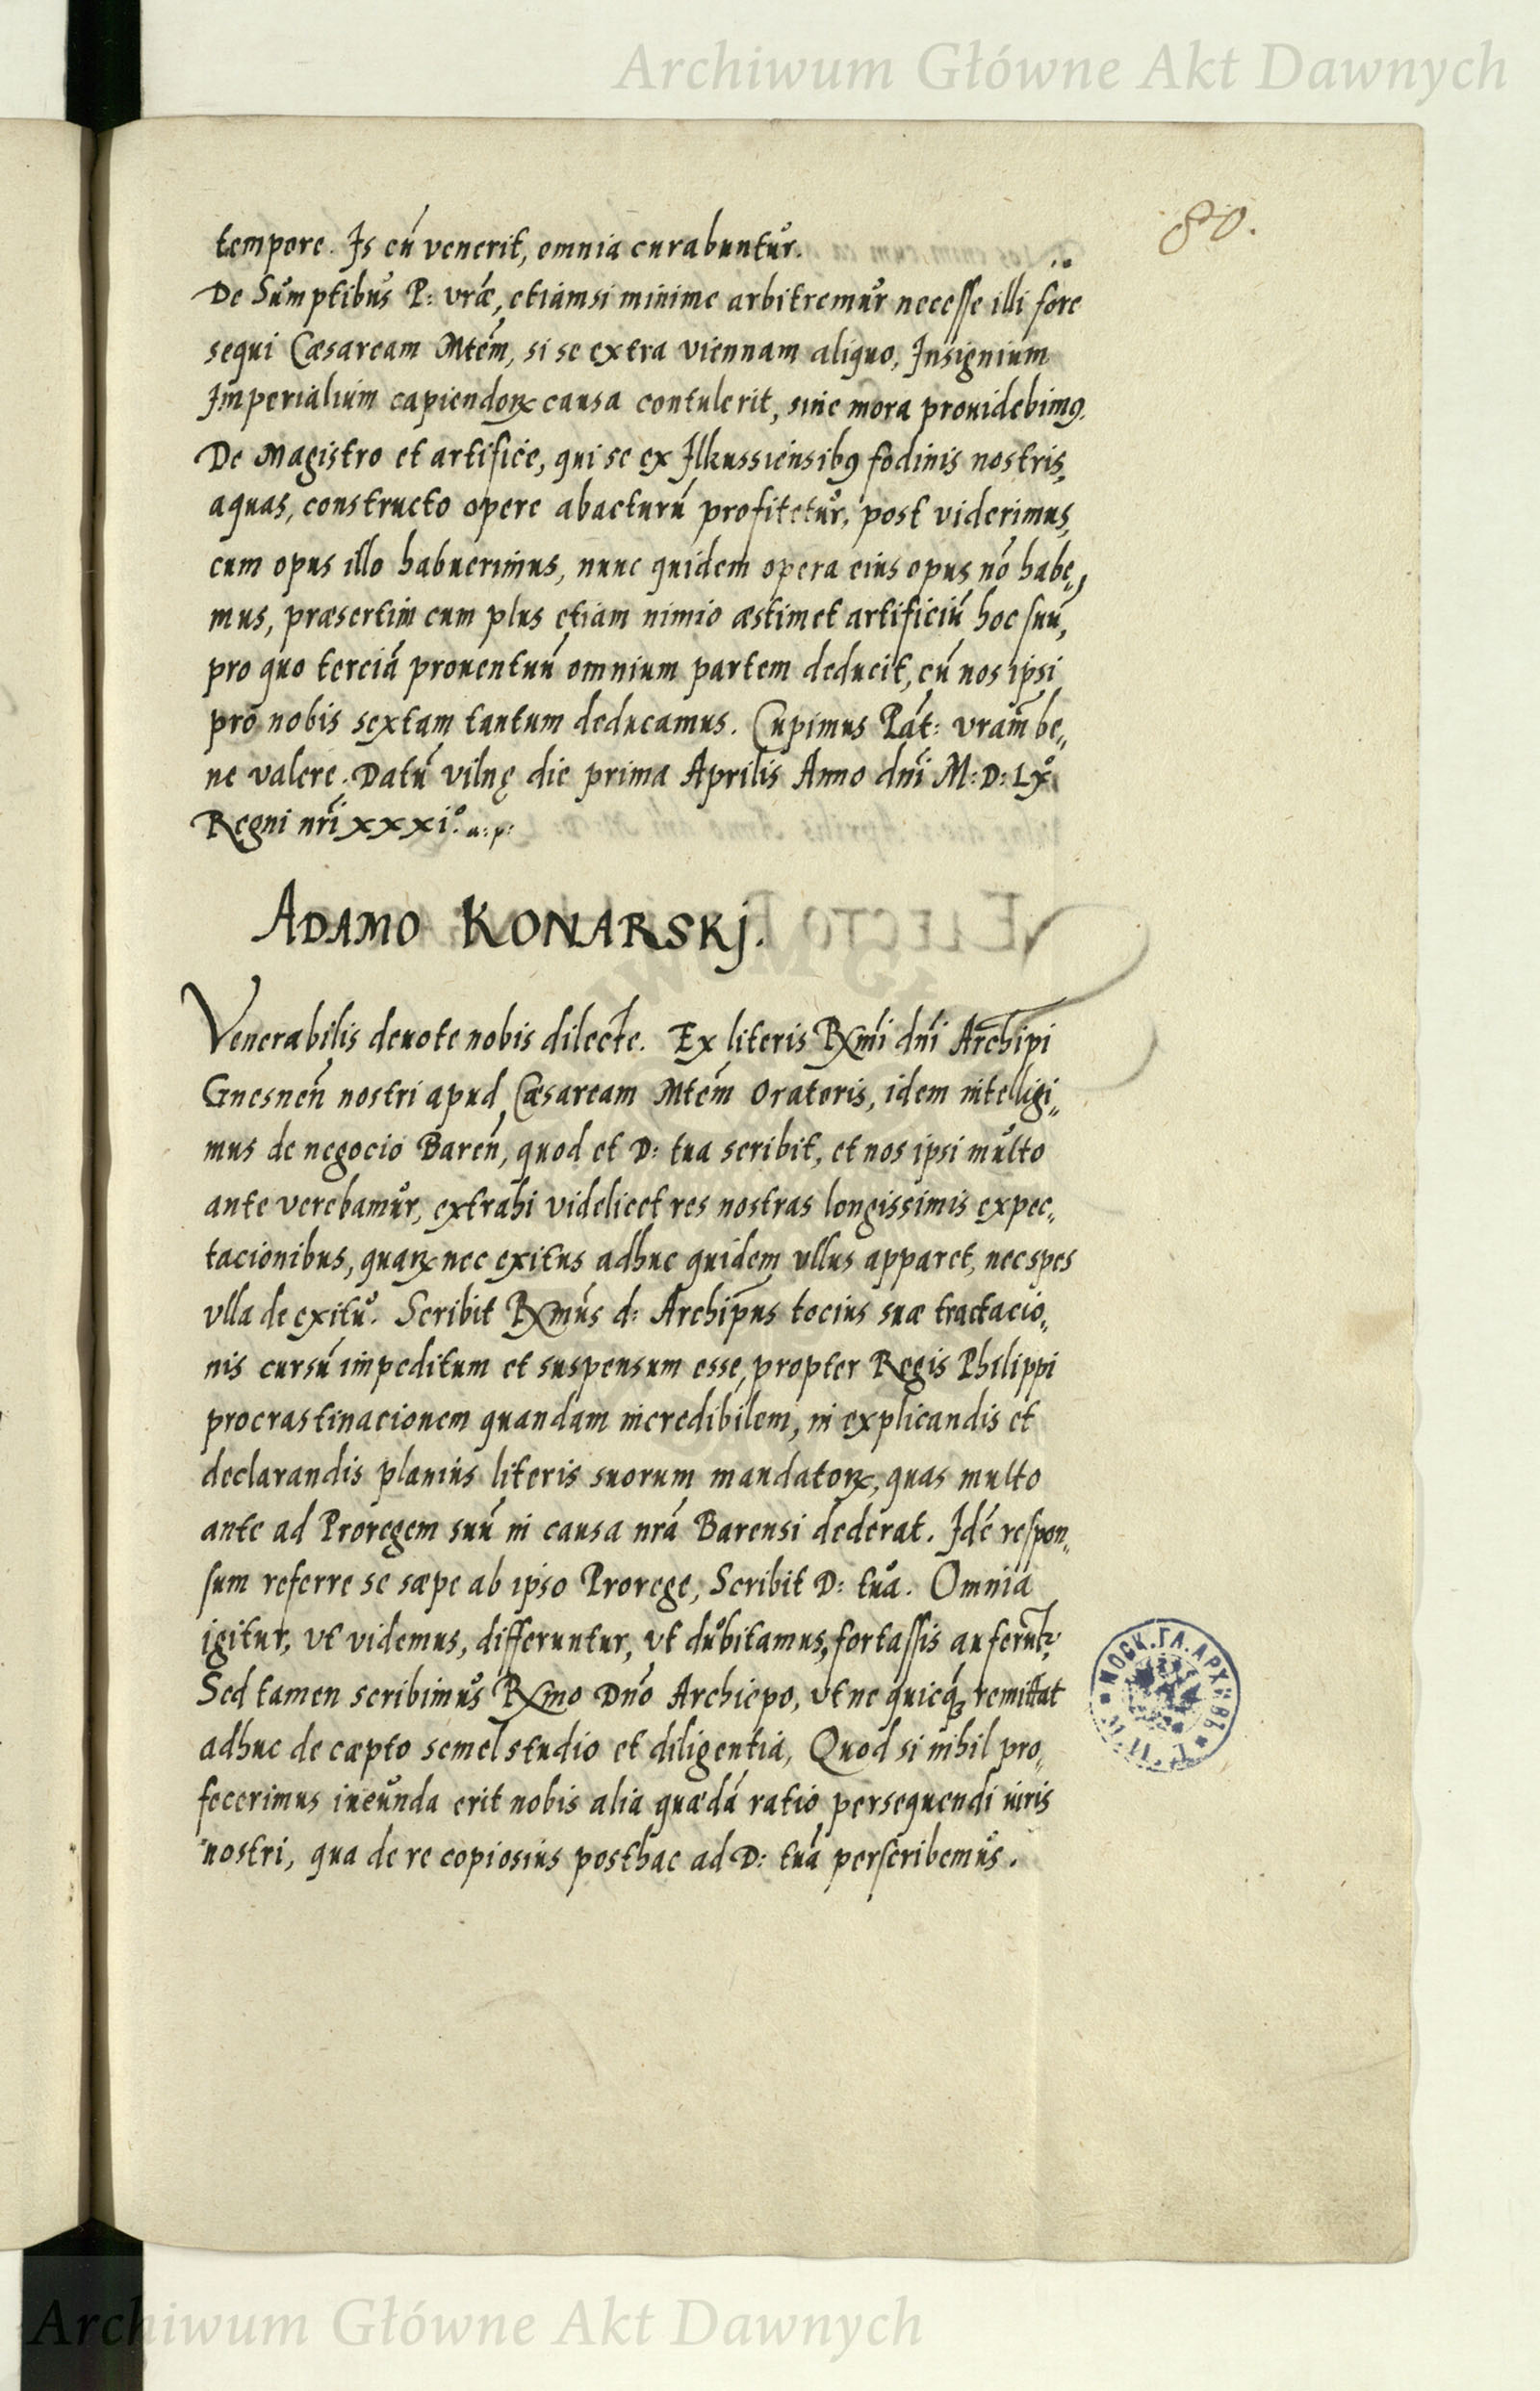 Archiwum Główne Akt Dawnych
80.
tempore. Is cũ venerit, omnia curabuntur.
De Sumptibus P: vræ, etiamsi minime arbitremur necesse illi fore
sequi Cæsaream Mtem, si se extra viennam aliquo, Insignium
Imperialium capiendoꝝ causa contulerit, sine mora prouidebimꝰ.
De Magistro et artifice, qui se ex Ilkussiensibꝰ fodinis nostris,
aquas, constructo opere abacturũ profitetur, post viderimus,
cum opus illo habuerimus, nunc quidem opera eius opus nõ habe„
mus, præsertim cum plus etiam nimio æstimet artificiũ hoc suũ,
pro quo terciã prouentuũ omnium partem deducit, cũ nos ipsi
pro nobis sextam tantum deducamus. Cupimus Pat: vram be„
ne valere. Datũ vilnę die prima Aprilis Anno dni M:D:LXº
Regni nri xxxiº. a: p:
ADAMO KONARSKj.
Venerabilis deuote nobis dilecte. Ex literis Rxmi dni Archipi
Gnesnen nostri apud Cæsaream Mtem Oratoris, idem intelligi„
mus de negocio Baren, quod et D: tua scribit, et nos ipsi multo
ante verebamur, extrahi videlicet res nostras longissimis expec„
tacionibus, quaꝝ nec exitus adhuc quidem vllus apparet, nec spes
vlla de exitu. Scribit Rxmus d: Archipus tocius suæ tractacio„
nis cursũ impeditum et suspensum esse, propter Regis Philippi
procrastinacionem quandam incredibilem, in explicandis et
declarandis planius literis suorum mandatoꝝ, quas multo
ante ad Proregem suũ in causa nrã Barensi dederat. Idẽ respon„
sum referre se sæpe ab ipso Prorege, Scribit D: tua. Omnia
igitur, vt videmus, differuntur, vt dubitamus, fortassis auferũtr.
Sed tamen scribimus Rxmo Dno Archiepo, vt ne quicq̃ remittat
adhuc de cæpto semel studio et diligentia, Quod si nihil pro„
fecerimus ineunda erit nobis alia quædã ratio persequendi iuris
nostri, qua de re copiosius posthac ad D: tuã perscribemus.
МОСК. ГЛ. АРХИВЪ
Archiwum Główne Akt Dawnych